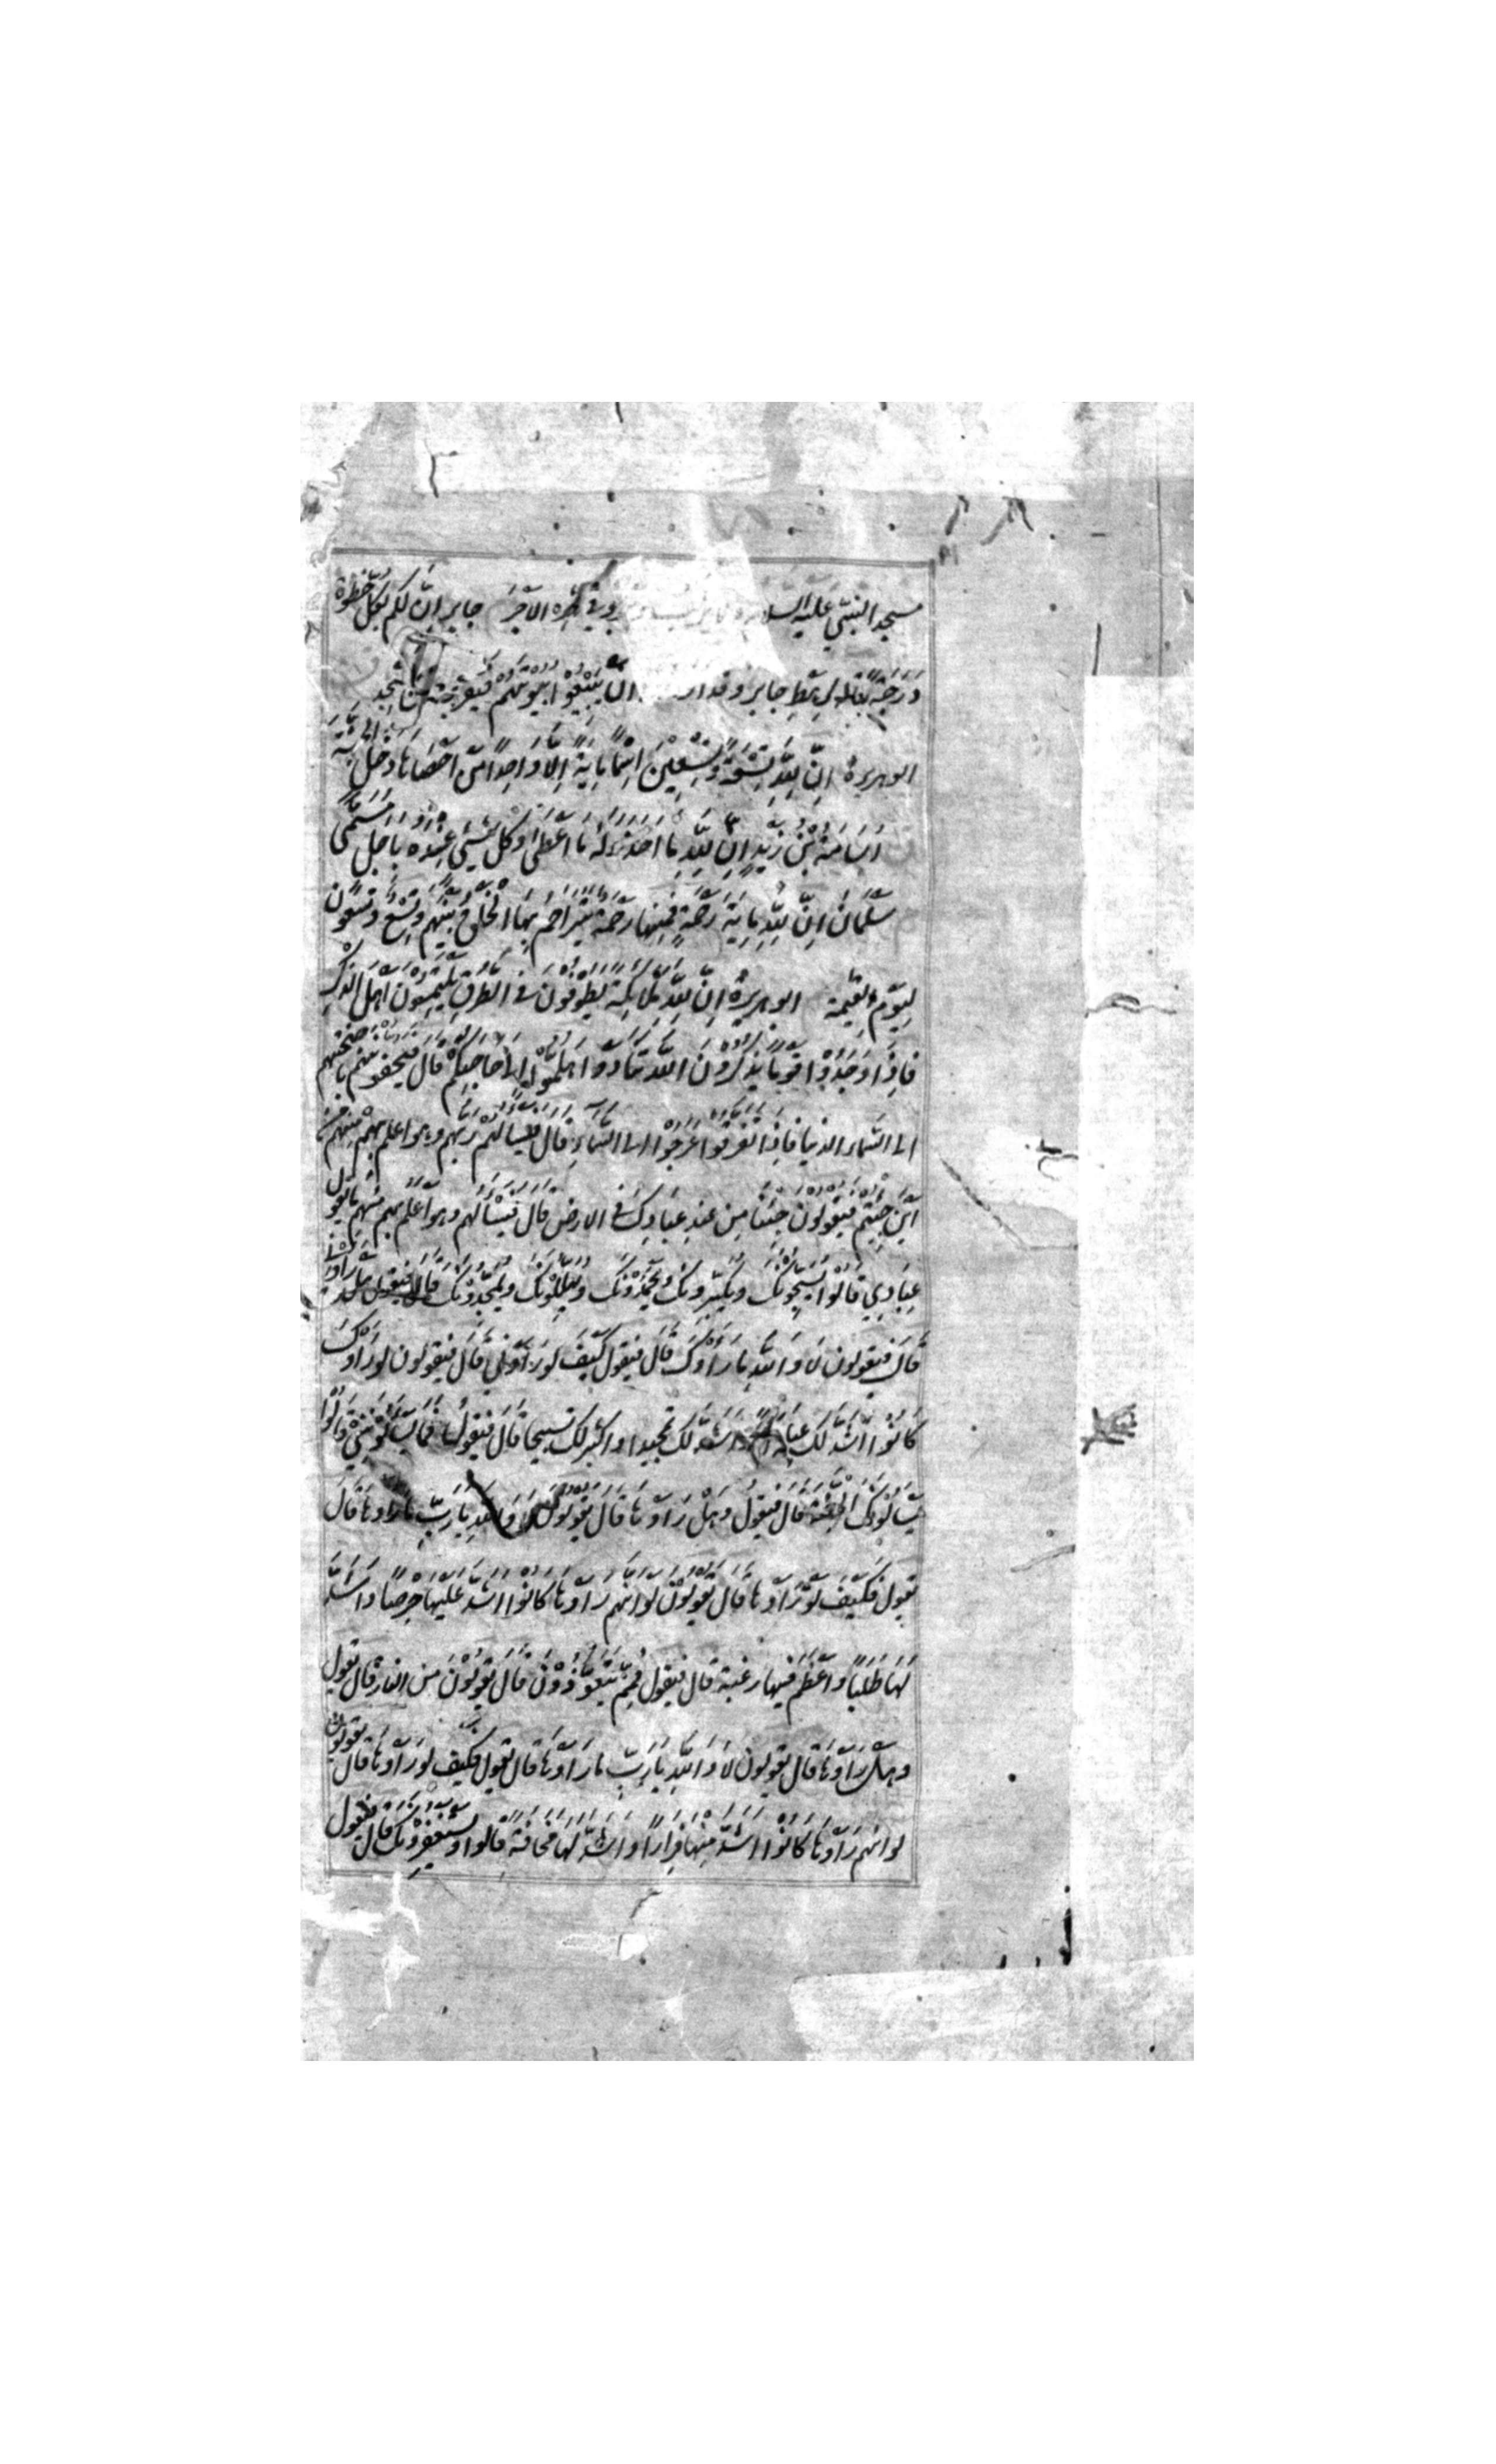 مسجد النبي عليه السلا الاجر جابر ان لكم بكل خطوة
دَرَجَةً جابر ان يبيعوا بيوتهم
ابو هريرة اِنّ لِلّهِ تِسْعَةً وَّتِسْعِيْنَ اسْمًا مِايَةً اِلّا وَاحِدًا مَنْ اَحْصَاهَا دَخَلَ الجَنَّةَ
اُسَامَةُ بْنُ زَيْدٍ اِنّ لِلّهِ مَا اَخَذَ وَلَهُ مَا اَعْطَى وَكُلّ شَيْءٍ عِنْدَهُ بِاَجَلٍ مُسَمًّى
سَلْمَانُ اِنّ لِلّهِ مِايَةَ رَحْمَةٍ فَمِنْهَا رَحْمَةٌ يَتَرَاحَمُ بِهَا الْخَلْقُ بَيْنَهُمْ وَتِسْعٌ وَّتِسْعُونَ
لِيَوْمِ القِيمَة ابو هريرة اِنّ لِلّهِ مَلَائِكَةً يَطُوْفُوْنَ فِي الطُّرُقِ يَلْتَمِسُوْنَ اَهْلَ الذِّكْرِ
فَاِذَا وَجَدُوْا قَوْمًا يَذْكُرُوْنَ اللّهَ تَنَادَوْا هَلُمّوا اِلى حَاجَتِكُمْ قَالَ فَيَحُفُّونَهُم بِاَجْنِحَتِهِم
الى السَّمَاء الدنيا فَاِذَا تَفَرَّقُوا عَرَجُوْا الى السَّمَاءِ قَالَ فَيَسْاَلُهُمْ رَبُّهُم وهو اعلم بِهِمْ مِنْ
اَيْنَ جِئْتُم فَيَقُوْلُونَ جِئْنَا مِن عِندِ عِبَادِكَ فِي الارض قَالَ فَيَسْاَلُهُم وهو اَعْلَمُ بِهِم مِنْهُم مَا يَقُوْلُ
عِبَادِي قَالُوْا يُسَبِّحُوْنَكَ وَيُكَبِّرُونَكَ وَيَحْمَدُوْنَكَ وَيُهَلِّلُوْنَكَ وَيُمَجِّدُوْنَكَ قَالَ فيقول هل رَاَوْنِي
قَالَ فيقولون لَا وَاللّهِ مَا رَاَوْكَ قَالَ فيقول كَيْفَ لَو رَاَوْنِي قَالَ فيقولون لو رَاَوْكَ
كَانُوْا اَشَدَّ لَكَ عِبَادَةً وَاَشَدَّ لَكَ تمجيدا واكثر لك تسبيحا قَالَ فيقول فَمَا يَسْاَلُوْنَنِي قَالُوْا
يَسْاَلُوْنَكَ الْجَنَّةَ قَالَ فَيقولُ وَهَلْ رَاَوْهَا قَالَ يَقُولُوْنَ لَا وَاللّهِ يَا رَبِّ مَا رَاَوْهَا قَالَ
يقول فكَيْفَ لَوْ رَاَوْهَا قَالَ يَقُوْلُوْنَ لَوْ اَنَّهُم رَاَوْهَا كَانُوْا اَشَدَّ عَلَيْهَا حِرْصًا وَاَشَدَّ
لَهَا طَلَبًا وَاَعْظَمَ فِيهَا رغبة قال فيقول فَمِمَّ يَتَعَوَّذُوْنَ قَالَ يَقُوْلُوْنَ مِنَ النار قَالَ يقول
وهَلْ رَاَوْهَا قَالَ يقولون لَا وَاللّهِ يَا رَبِّ مَا رَاَوْهَا قَالَ يقول فكَيْفَ لو رَاَوْهَا قَالَ يقولون
لو انهم رَاَوْهَا كَانُوْا اَشَدَّ مِنْهَا فِرَارًا وَاَشَدَّ لَهَا مَخَافَةً قَالُوا وَيَسْتَغْفِرُوْنَكَ قَالَ فيقول